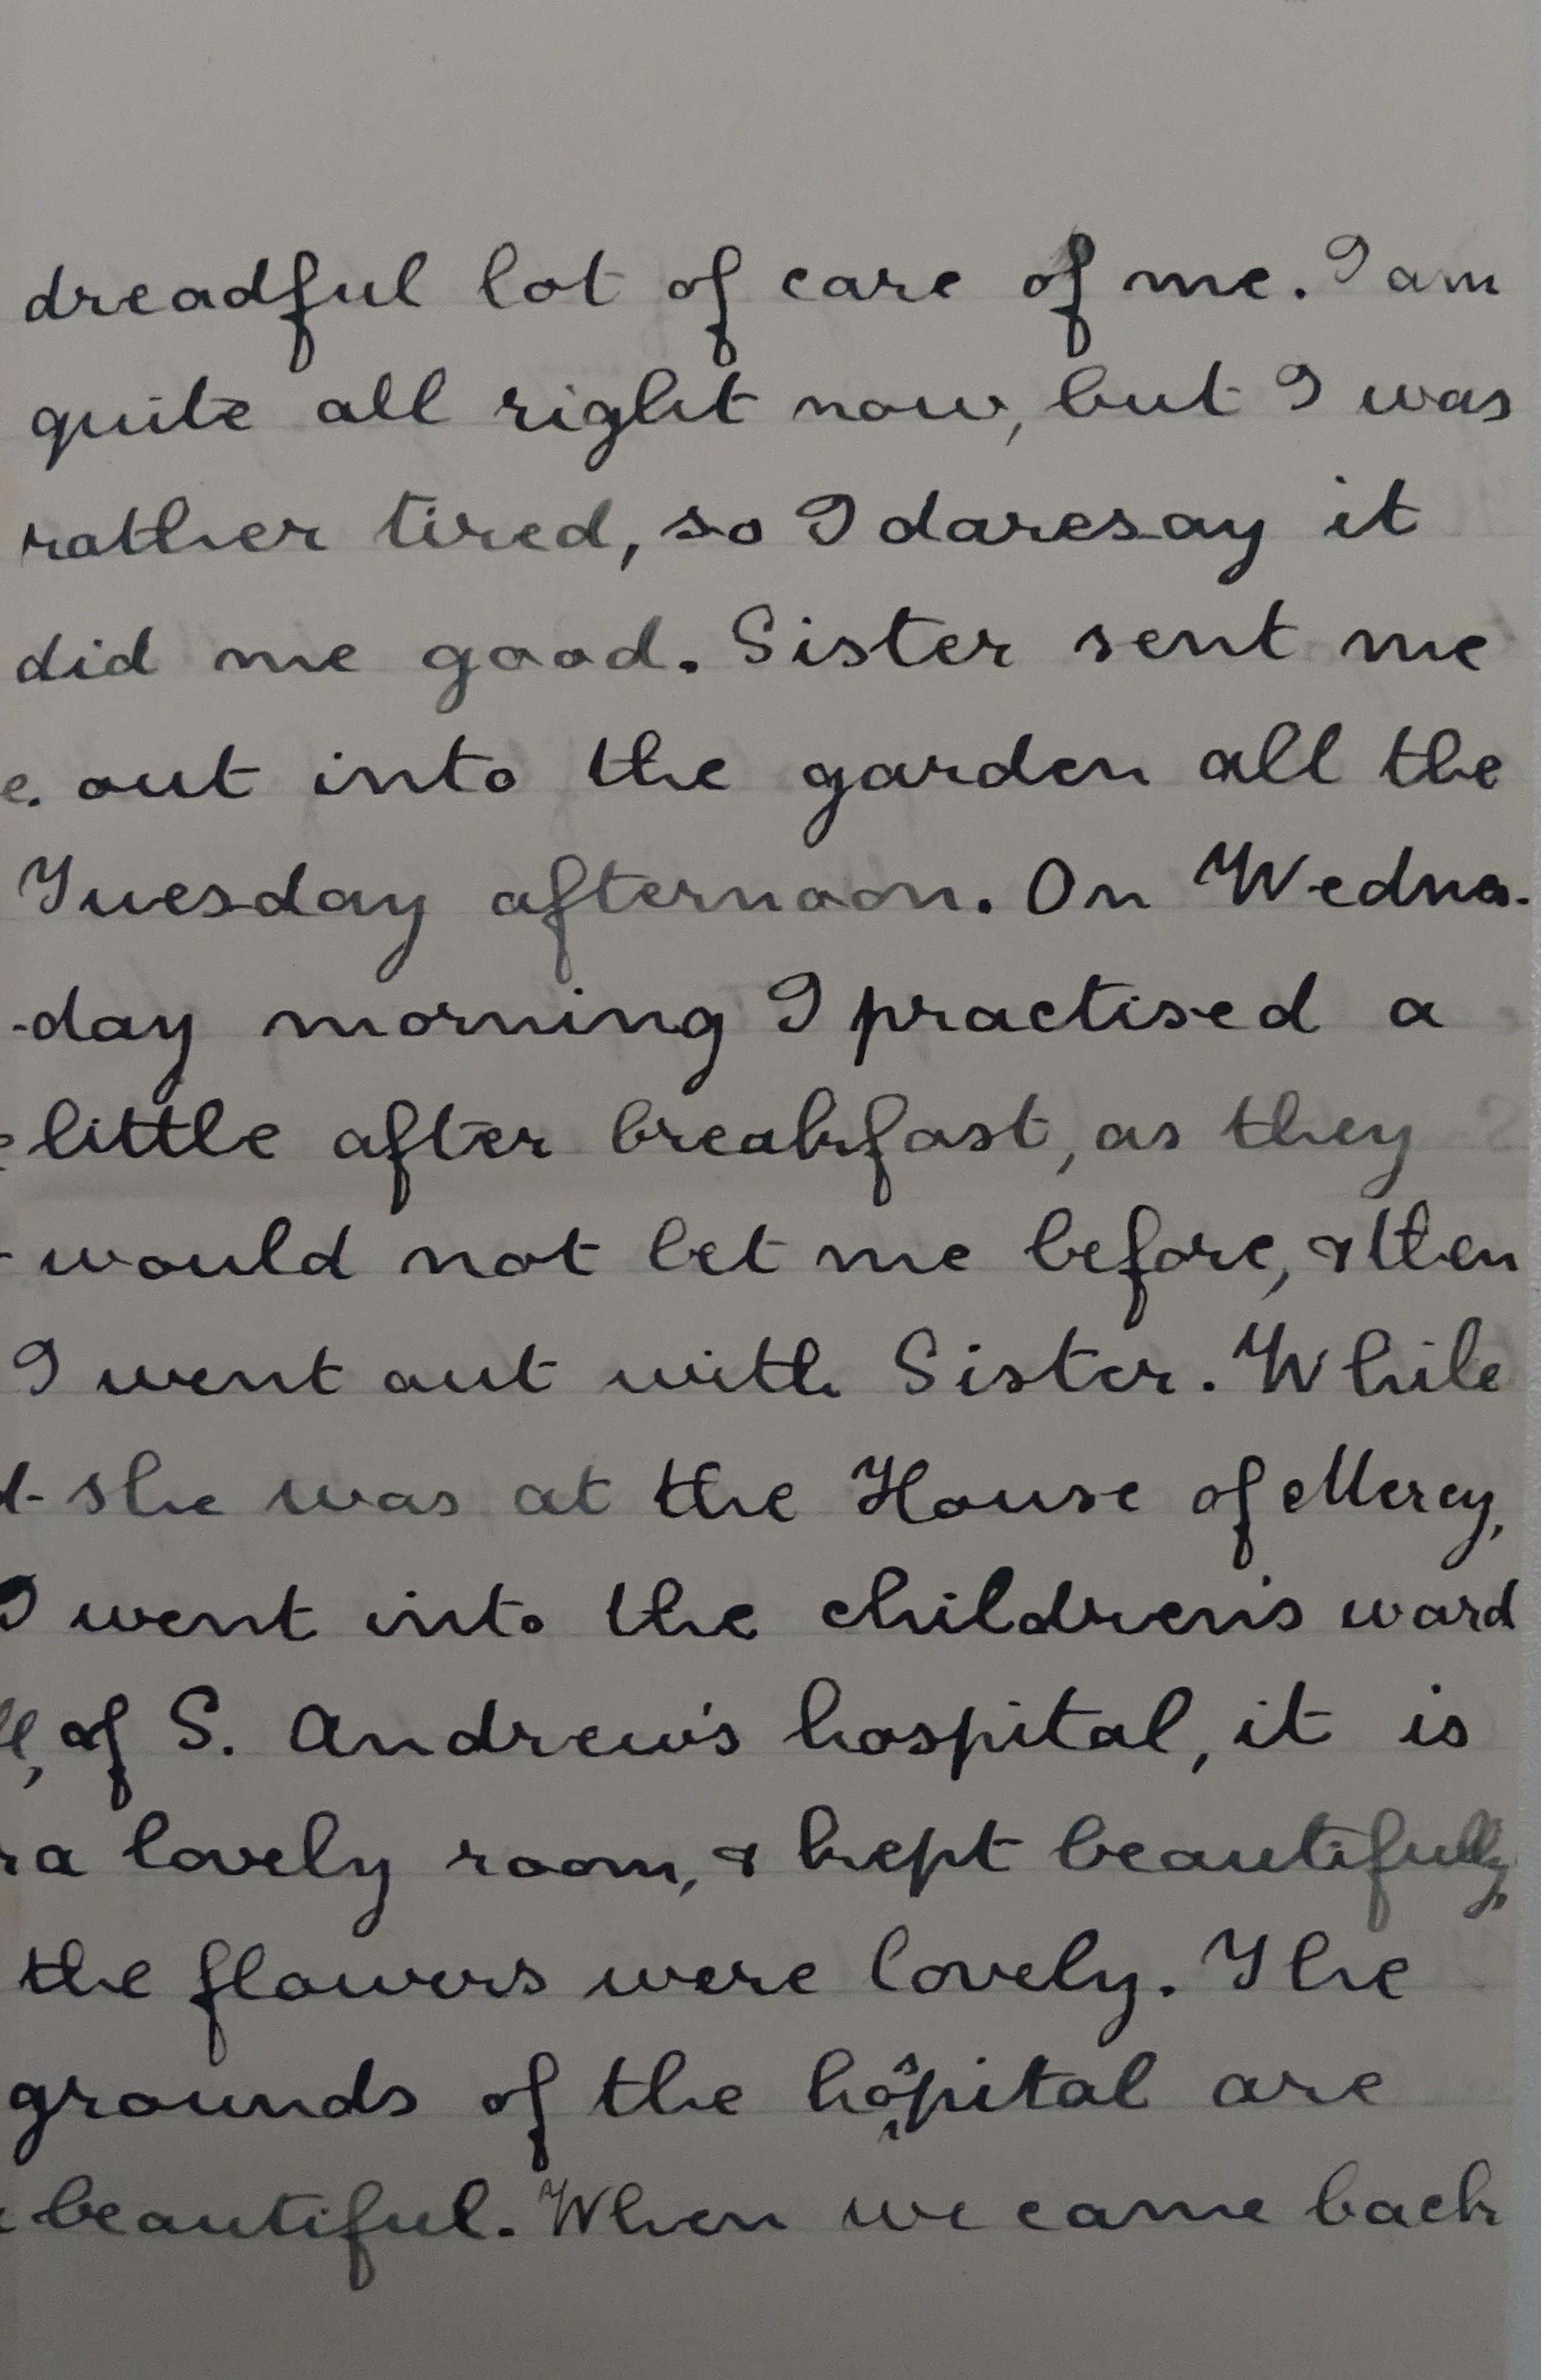 dreadful lot of care of me. I am
quite all right now, but I was
rather tired, so I daresay it
did me good. Sister sent me
out into the garden all the
Tuesday afternoon. On Wednes-
-day morning I practised a
little after breakfast, as they
would not let me before, & then
I went out with Sister. While
she was at the House of Mercy,
I went into the children's ward
of S. Andrew's hospital, it is
a lovely room, & kept beautifully,
the flowers were lovely. The
grounds of the hospital are
beautiful. When we came back